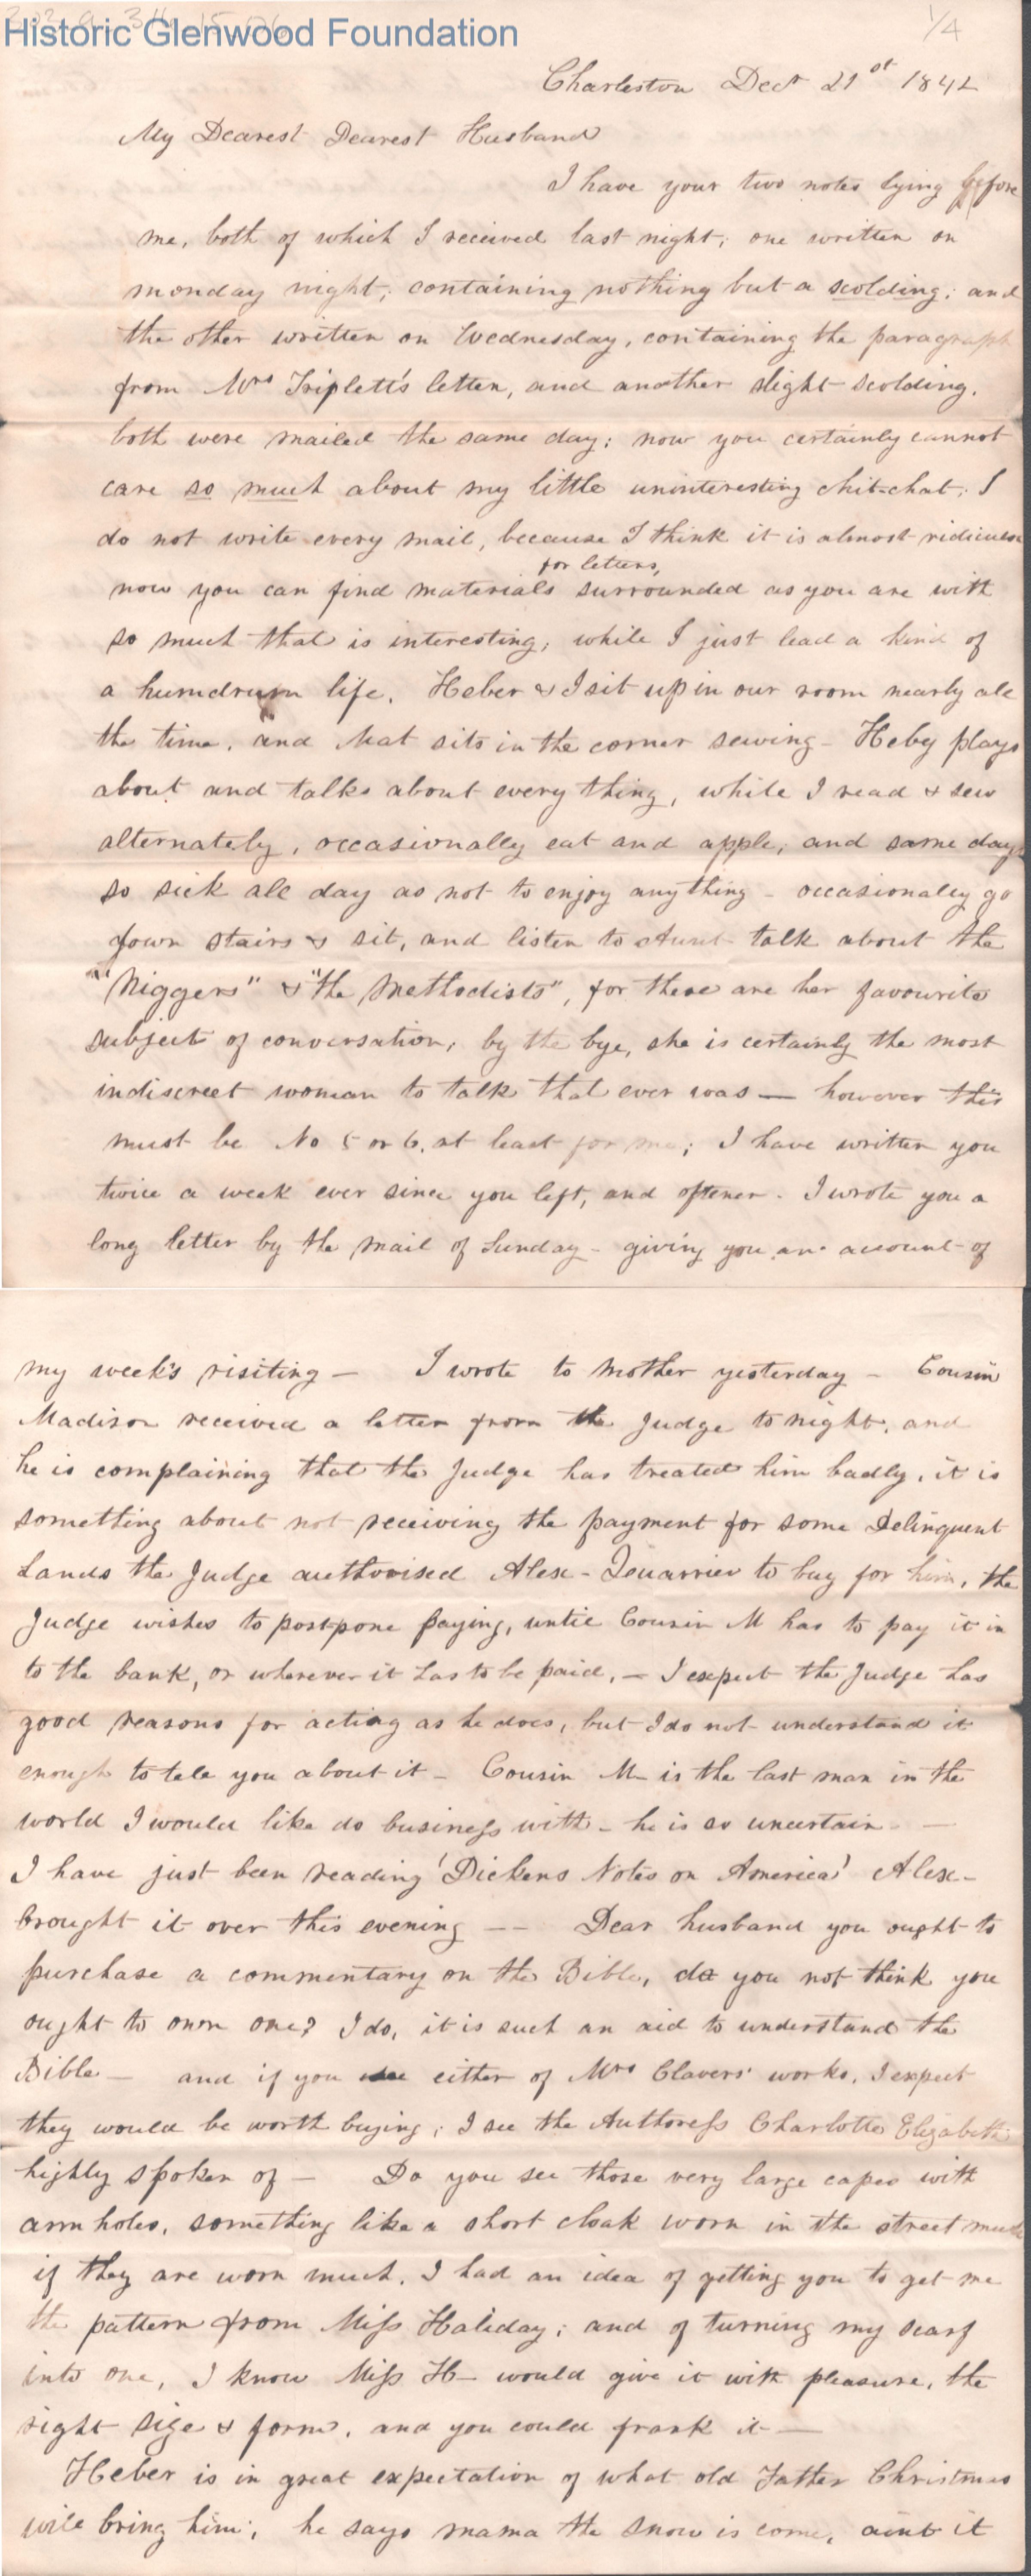 1/4
Historic Glenwood Foundation
Charleston Decr 21st 1842
My Dearest Dearest Husband
I have your two notes lying before
me, both of which I received last night; one written on
monday night; containing nothing but a scolding; and
the other written on Wednesday, containing the paragraph
from Mrs Triplett's letter, and another slight scolding.
both were mailed the same day; now you certainly cannot
care so much about my little uninteresting chit-chat; I
do not write every mail, because I think it is almost ridiculous
for letters,
now you can find materials surrounded as you are with
so much that is interesting, while I just lead a kind of
a humdrum life. Heber & I sit up in our room nearly all
the time, and Mat sits in the corner sewing - Heby plays
about and talks about every thing, while I read & sew
alternately, occasionally eat and apple, and some days
so sick all day as not to enjoy anything - occasionally go
down stairs & sit, and listen to Aunt talk about the
"Niggers" & "the Methodists", for these are her favourite
subject of conversation, by the bye, she is certainly the most
indiscreet woman to talk that ever was — however this
must be No 5 or 6. at least for me; I have written you
twice a week ever since you left, and oftener. I wrote you a
long letter by the mail of Sunday - giving you an account of
my week's visiting — I wrote to Mother yesterday - Cousin
Madison received a letter from the Judge to night, and
he is complaining that the Judge has treated him badly, it is
something about not receiving the payment for some Delinquent
Lands the Judge authorised Alex - Quarrier to buy for him, the
Judge wishes to postpone paying, until Cousin M has to pay it in
to the bank, or wherever it has to be paid, — I expect the Judge has
good reasons for acting as he does, but I do not understand it
enough to tell you about it - Cousin M - is the last man in the
world I would like do business with - he is so uncertain - —
I have just been reading 'Dickens Notes on America' Alex -
brought it over this evening -— Dear husband you ought to
purchase a commentary on the Bible, do you not think you
ought to own one? I do, it is such an aid to understand the
Bible — and if you see either of Mrs Clavers' works, I expect
they would be worth buying; I see the Authoress Charlotte Elizabeth
highly spoken of — Do you see those very large capes with
arm holes, something like a short cloak worn in the street much
if they are worn much, I had an idea of getting you to get me
the pattern from Miss Haliday; and of turning my scarf
into one, I know Miss H - would give it with pleasure, the
right size & form, and you could frank it —
Heber is in great expectation of what old Father Christmas
will bring him; he says mama the snow is come, aint it